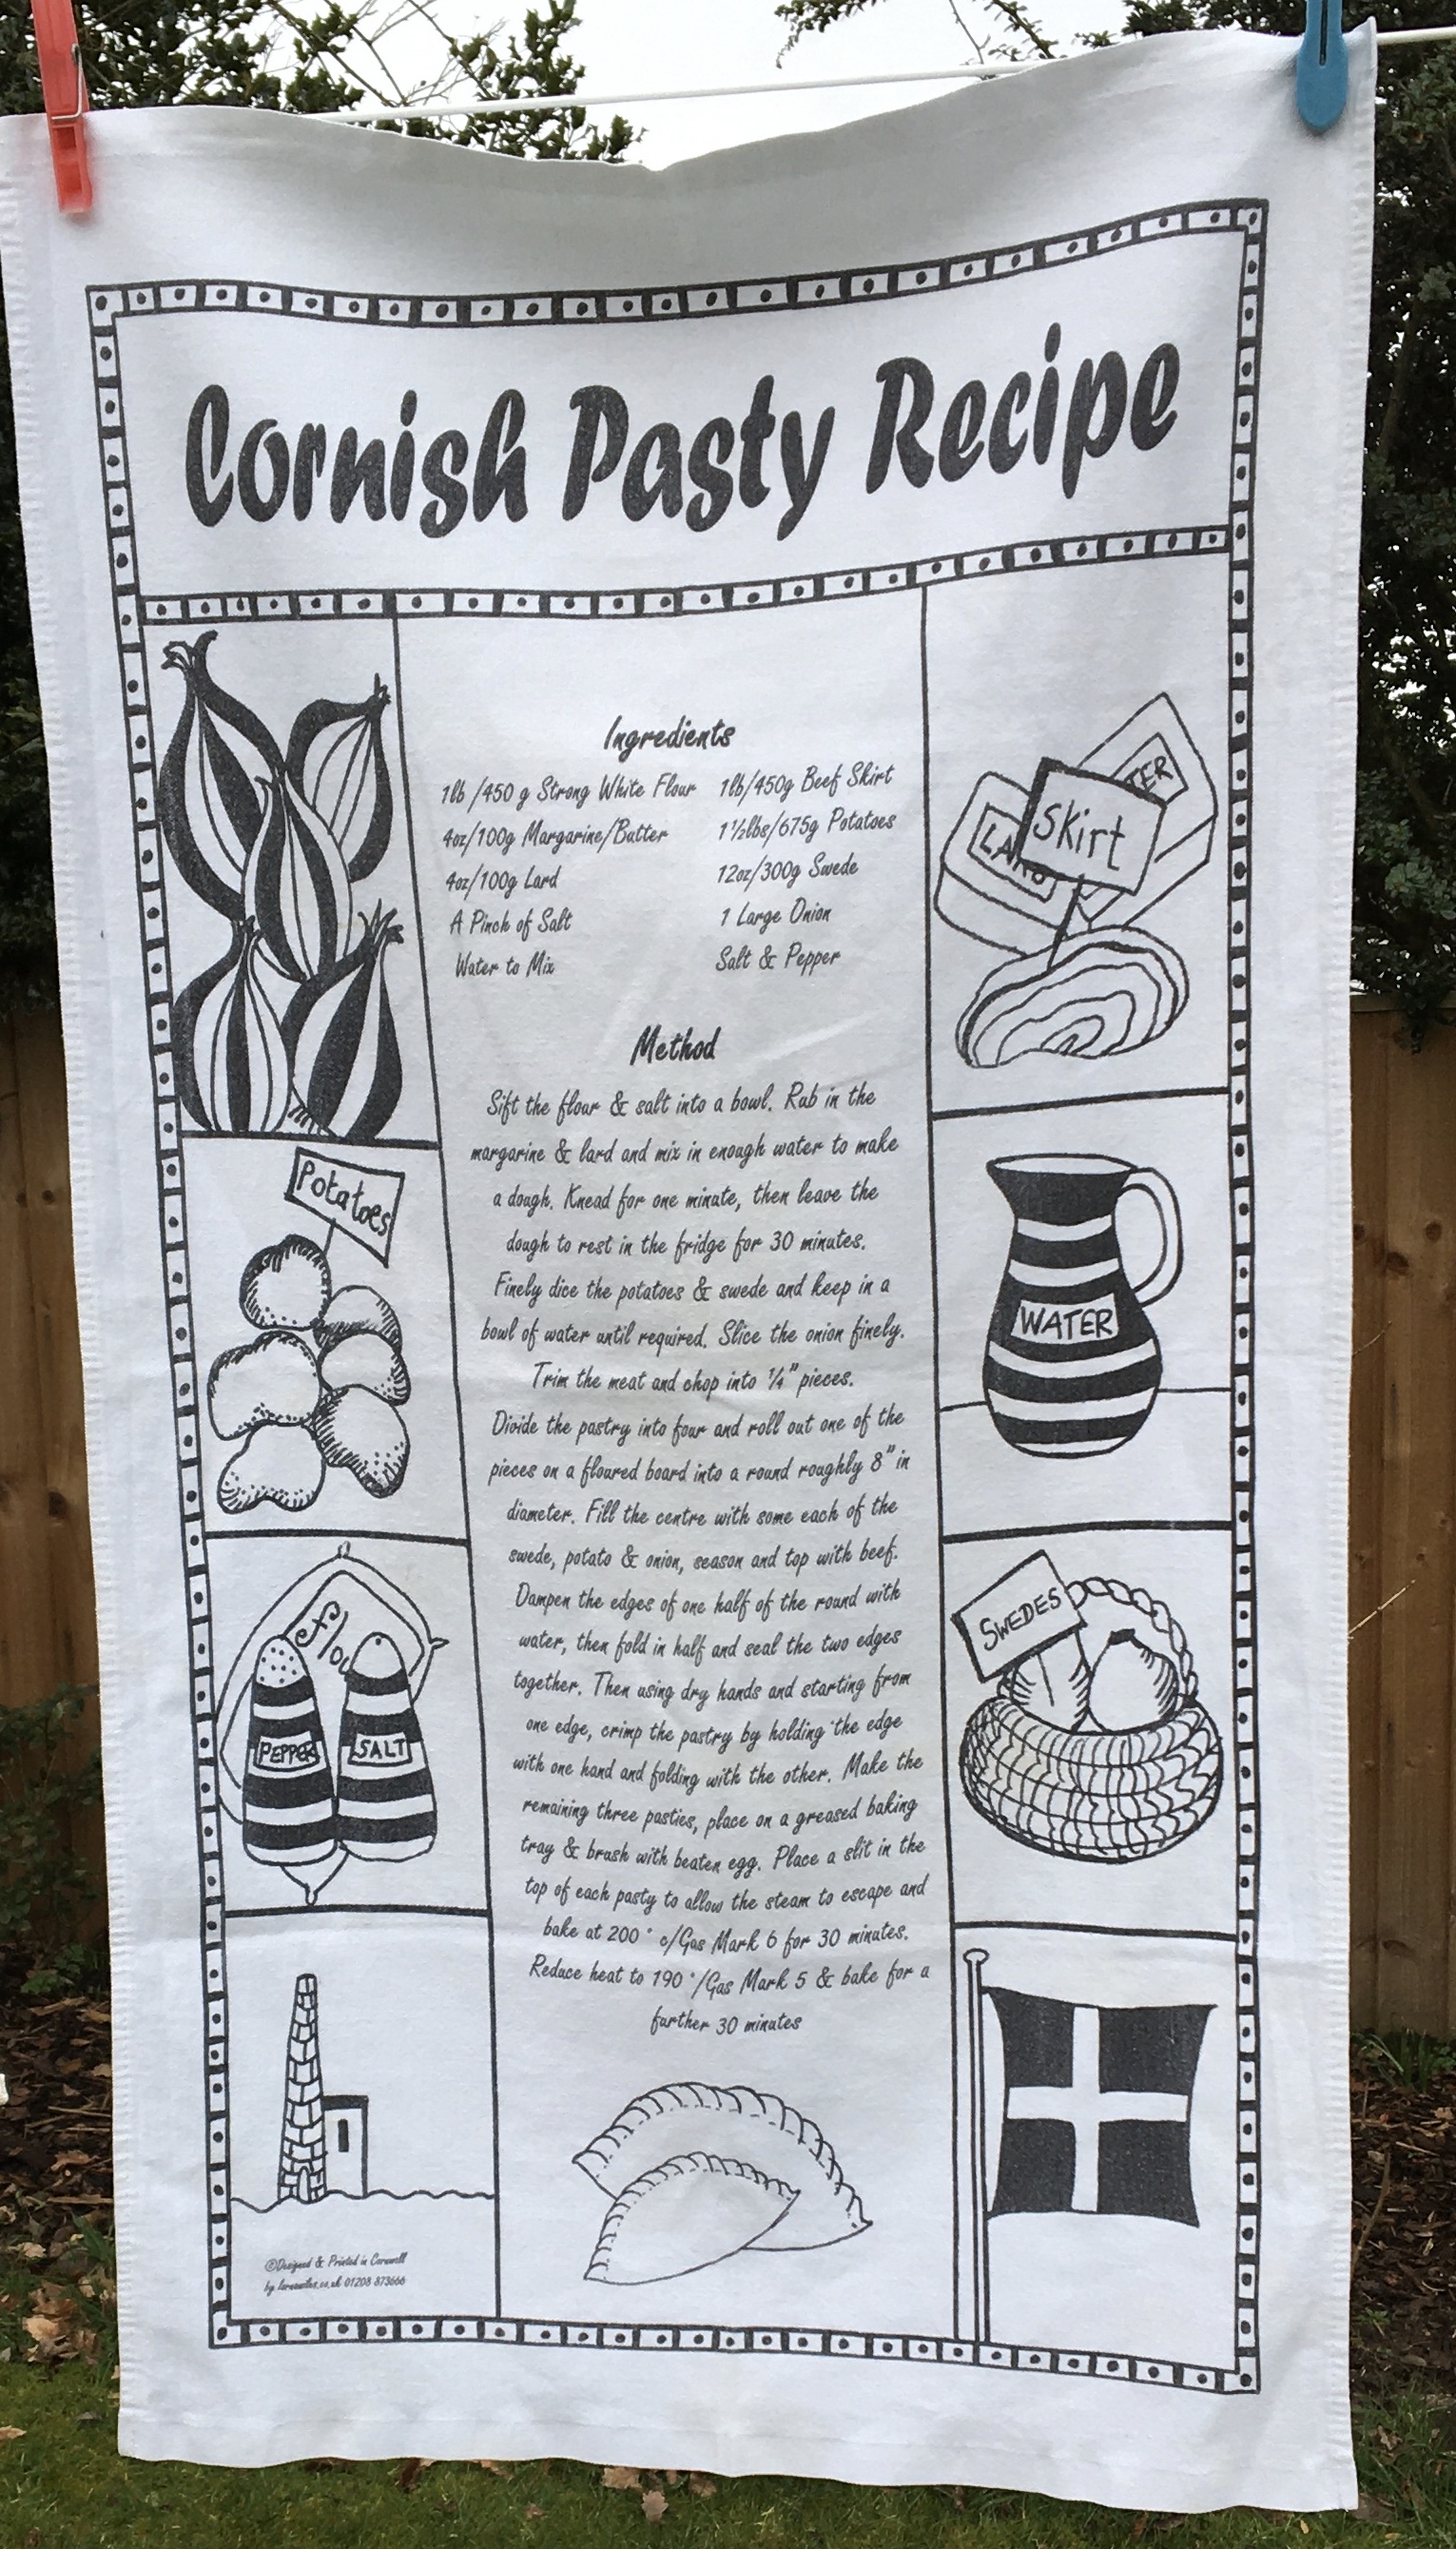 Cornish Pasty Recipe
Ingredients
1lb /450 g Strong White Flour
4oz/100g Margarine/Butter
4oz/100g Lard
A Pinch of Salt
Water to Mix
1lb/450g Beef Skirt
1½lbs/675g Potatoes
12oz/300g Swede
1 Large Onion
Salt & Pepper
Method
Sift the flour & salt into a bowl. Rub in the
margarine & lard and mix in enough water to make
a dough. Knead for one minute, then leave the
dough to rest in the fridge for 30 minutes.
Finely dice the potatoes & swede and keep in a
bowl of water until required. Slice the onion finely.
Trim the meat and chop into ¼" pieces.
Divide the pastry into four and roll out one of the
pieces on a floured board into a round roughly 8" in
diameter. Fill the centre with some each of the
swede, potato & onion, season and top with beef.
Dampen the edges of one half of the round with
water, then fold in half and seal the two edges
together. Then using dry hands and starting from
one edge, crimp the pastry by holding the edge
with one hand and folding with the other. Make the
remaining three pasties, place on a greased baking
tray & brush with beaten egg. Place a slit in the
top of each pasty to allow the steam to escape and
bake at 200 ° c/Gas Mark 6 for 30 minutes.
Reduce heat to 190 °/Gas Mark 5 & bake for a
further 30 minutes
Potatoes
Flou
PEPPER
SALT
©Designed & Printed in Cornwall
by 01208 873666
TER
LARD
Skirt
WATER
SWEDES